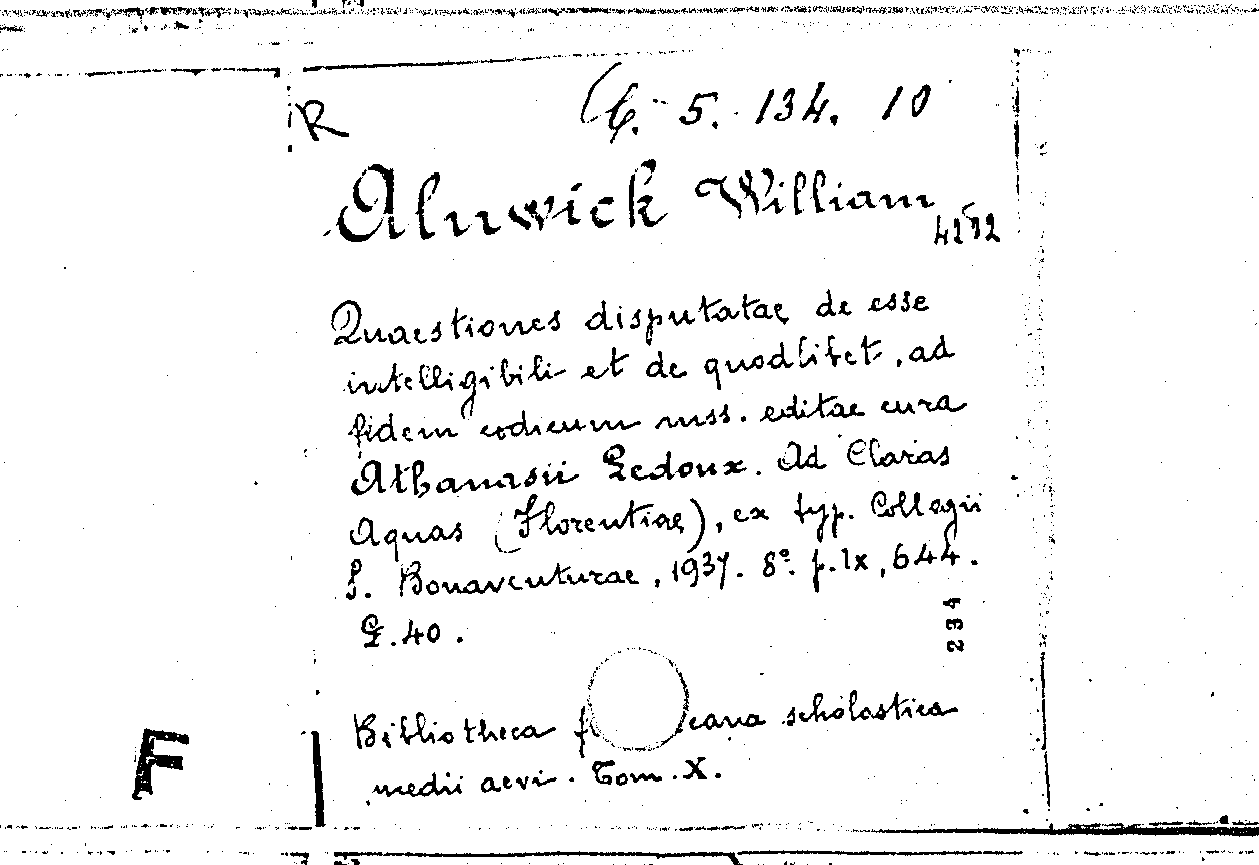 R
6. 5. 134. 10
Alnwick William
4232
Quaestiones disputatae de esse
intelligibili et de quodlibet, ad
fidem codicum mss. editae cura
Athanasii Ledoux. Ad Claras
Aquas (Florentiae), ex typ. Collegii
S. Bonaventurae, 1937. 8°. p. lx, 644.
L. 40.
234
Bibliotheca f cana scholastica
medii aevi. Tom. X.
F